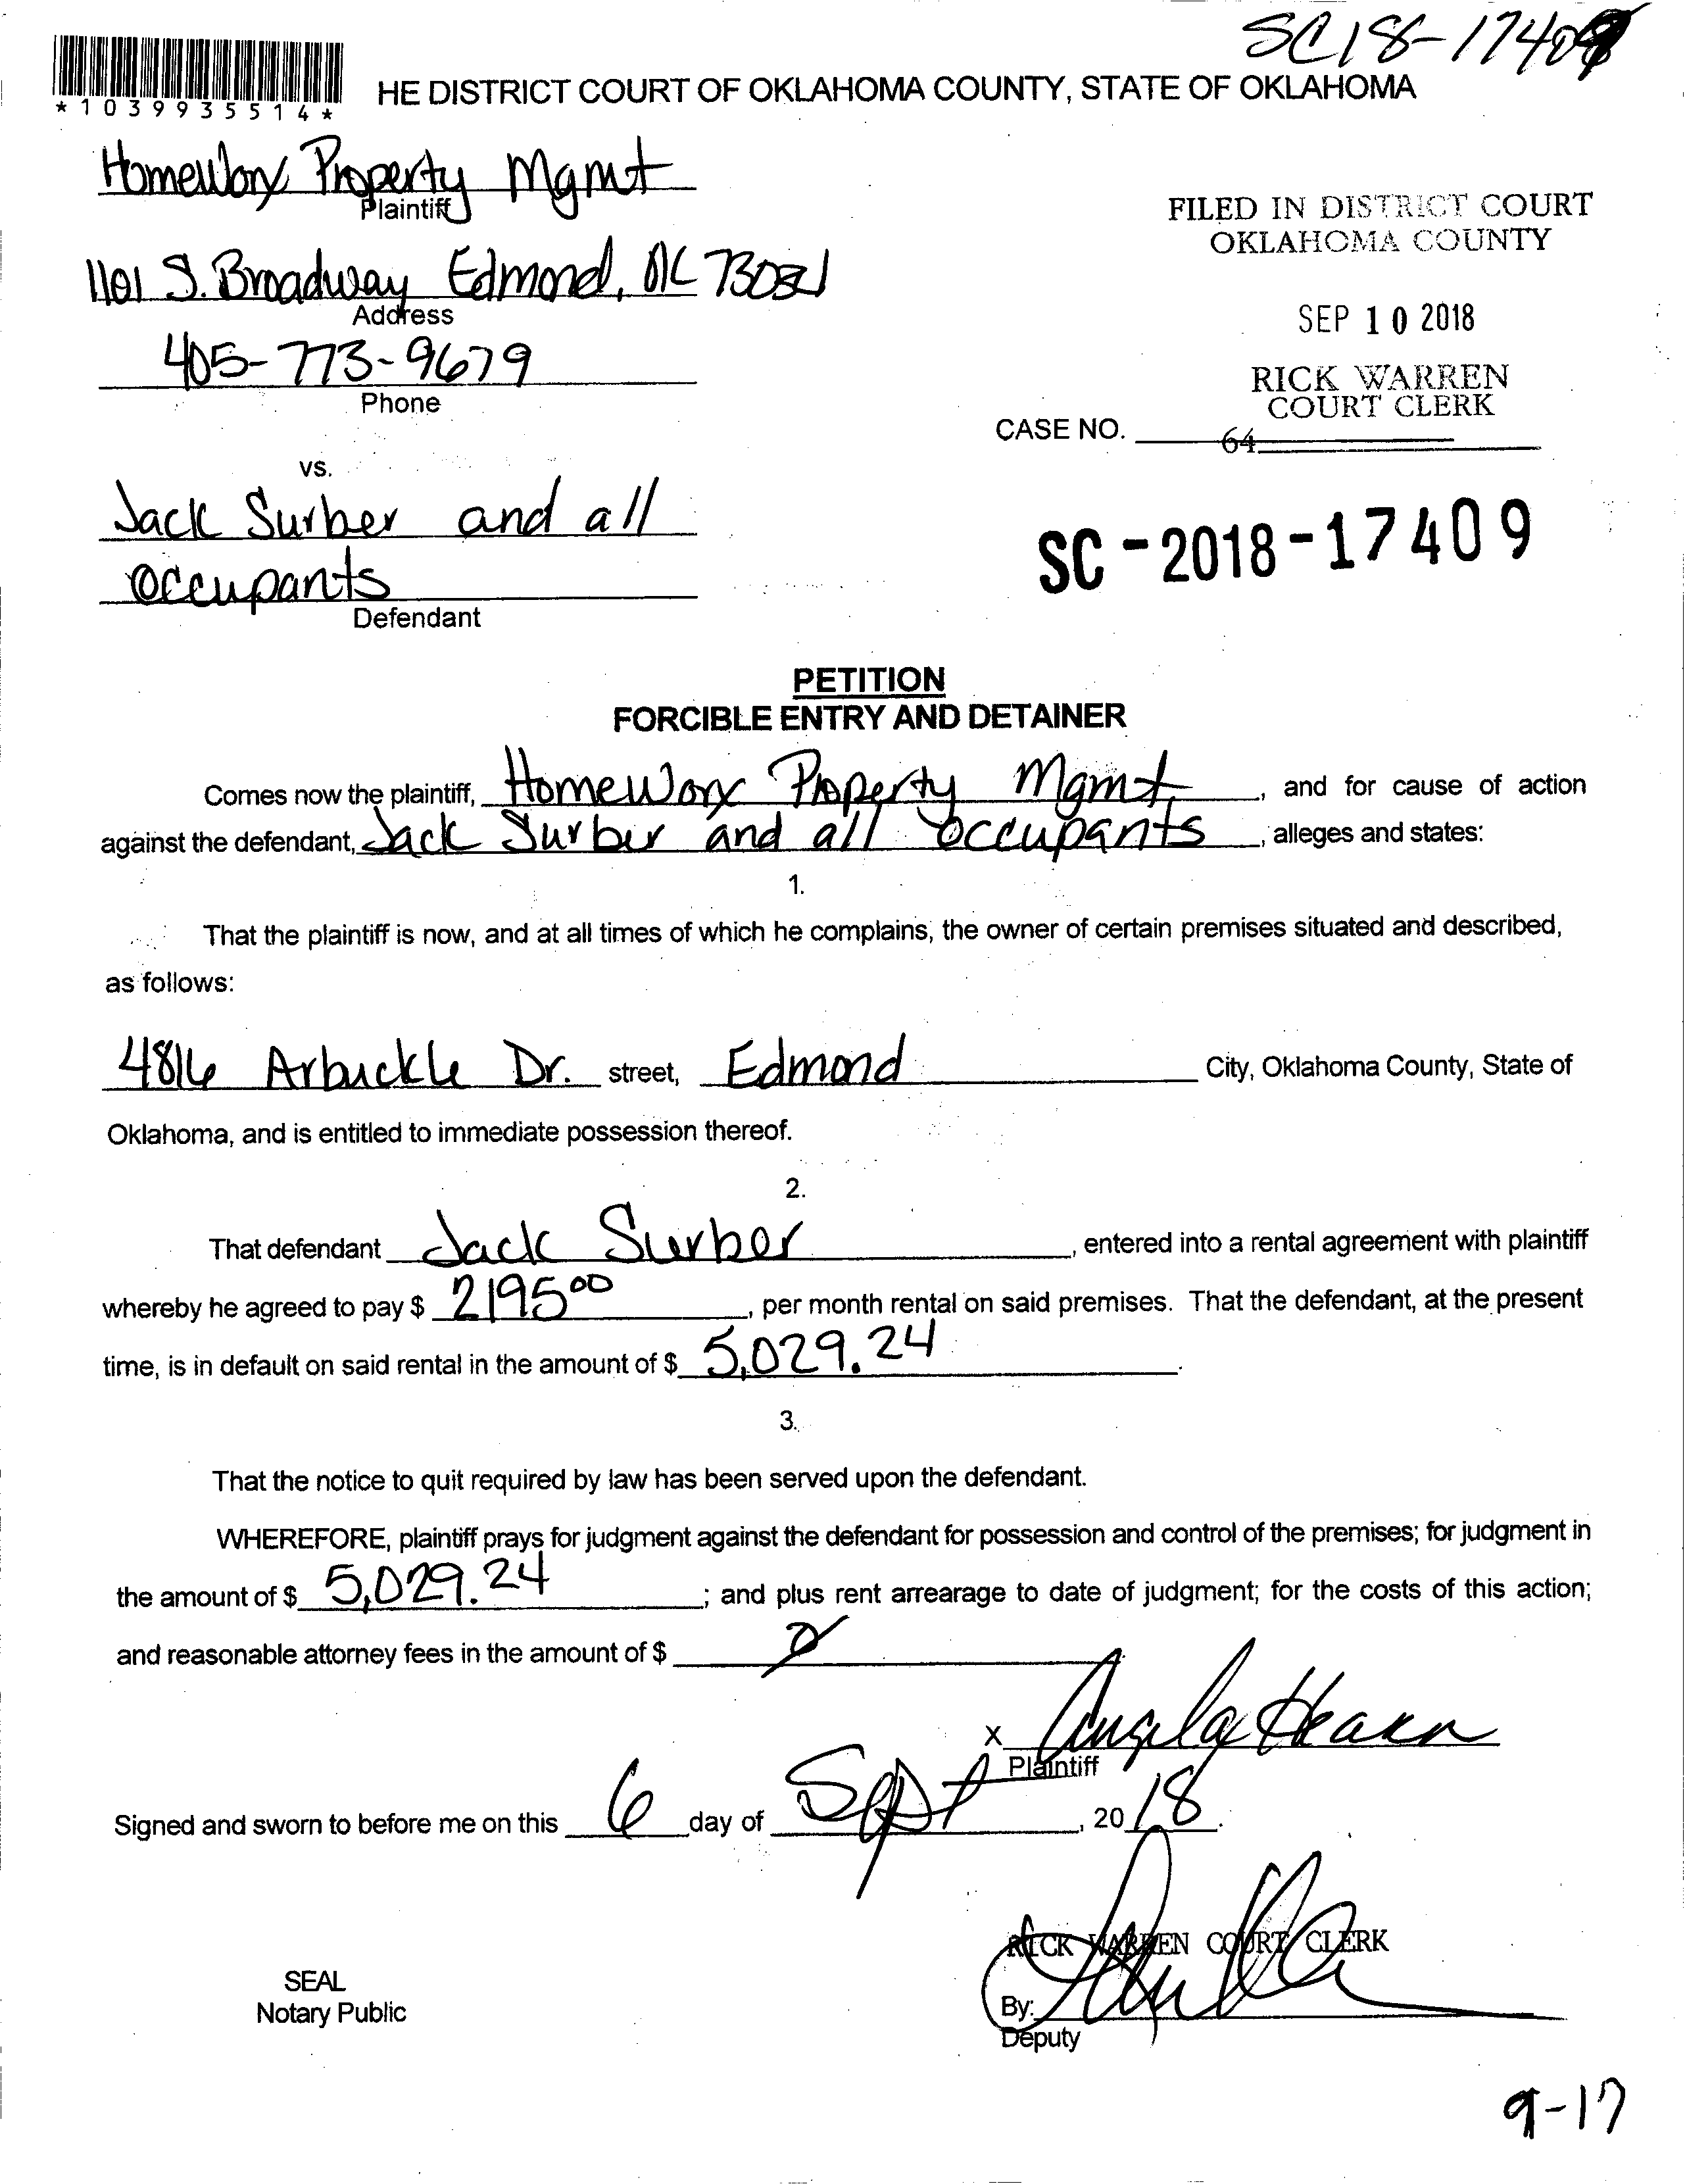 SC18-17409
*1039935514*
HE DISTRICT COURT OF OKLAHOMA COUNTY, STATE OF OKLAHOMA
Homeworx Property Mgmt
Plaintiff
1101 S. Broadway Edmond, OK
Address
405-773-9679
Phone
FILED IN DISTRICT COURT
OKLAHOMA COUNTY
SEP 10 2018
RICK WARREN
COURT CLERK
CASE NO.
64
vs.
Jack Surber and all
occupants
Defendant
SC-2018-17409
PETITION
FORCIBLE ENTRY AND DETAINER
Comes now the plaintiff, HomeWorx Property Mgmt, and for cause of action
against the defendant, Jack Surber and all occupants, alleges and states:
1.
That the plaintiff is now, and at all times of which he complains, the owner of certain premises situated and described,
as follows:
4816 Arbuckle Dr. street, Edmond City, Oklahoma County, State of
Oklahoma, and is entitled to immediate possession thereof.
2.
That defendant Jack Surber, entered into a rental agreement with plaintiff
whereby he agreed to pay $ 2195 00, per month rental on said premises. That the defendant, at the present
time, is in default on said rental in the amount of $ 5,029.24.
3.
That the notice to quit required by law has been served upon the defendant.
WHEREFORE, plaintiff prays for judgment against the defendant for possession and control of the premises; for judgment in
the amount of $ 5,029.24; and plus rent arrearage to date of judgment; for the costs of this action;
and reasonable attorney fees in the amount of $
X Angela Hearn
Plaintiff
Signed and sworn to before me on this 6 day of Sept, 2018.
RICK WARREN COURT CLERK
SEAL
Notary Public
By:
Deputy
9-17